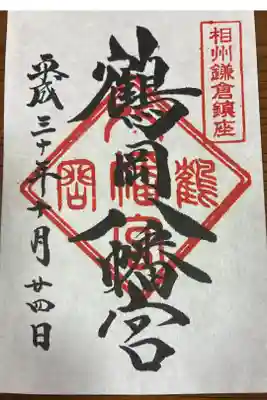 相州鎌倉鎮座
鶴岡八幡宮
鶴岡八幡宮
平成三十年十月廿四日